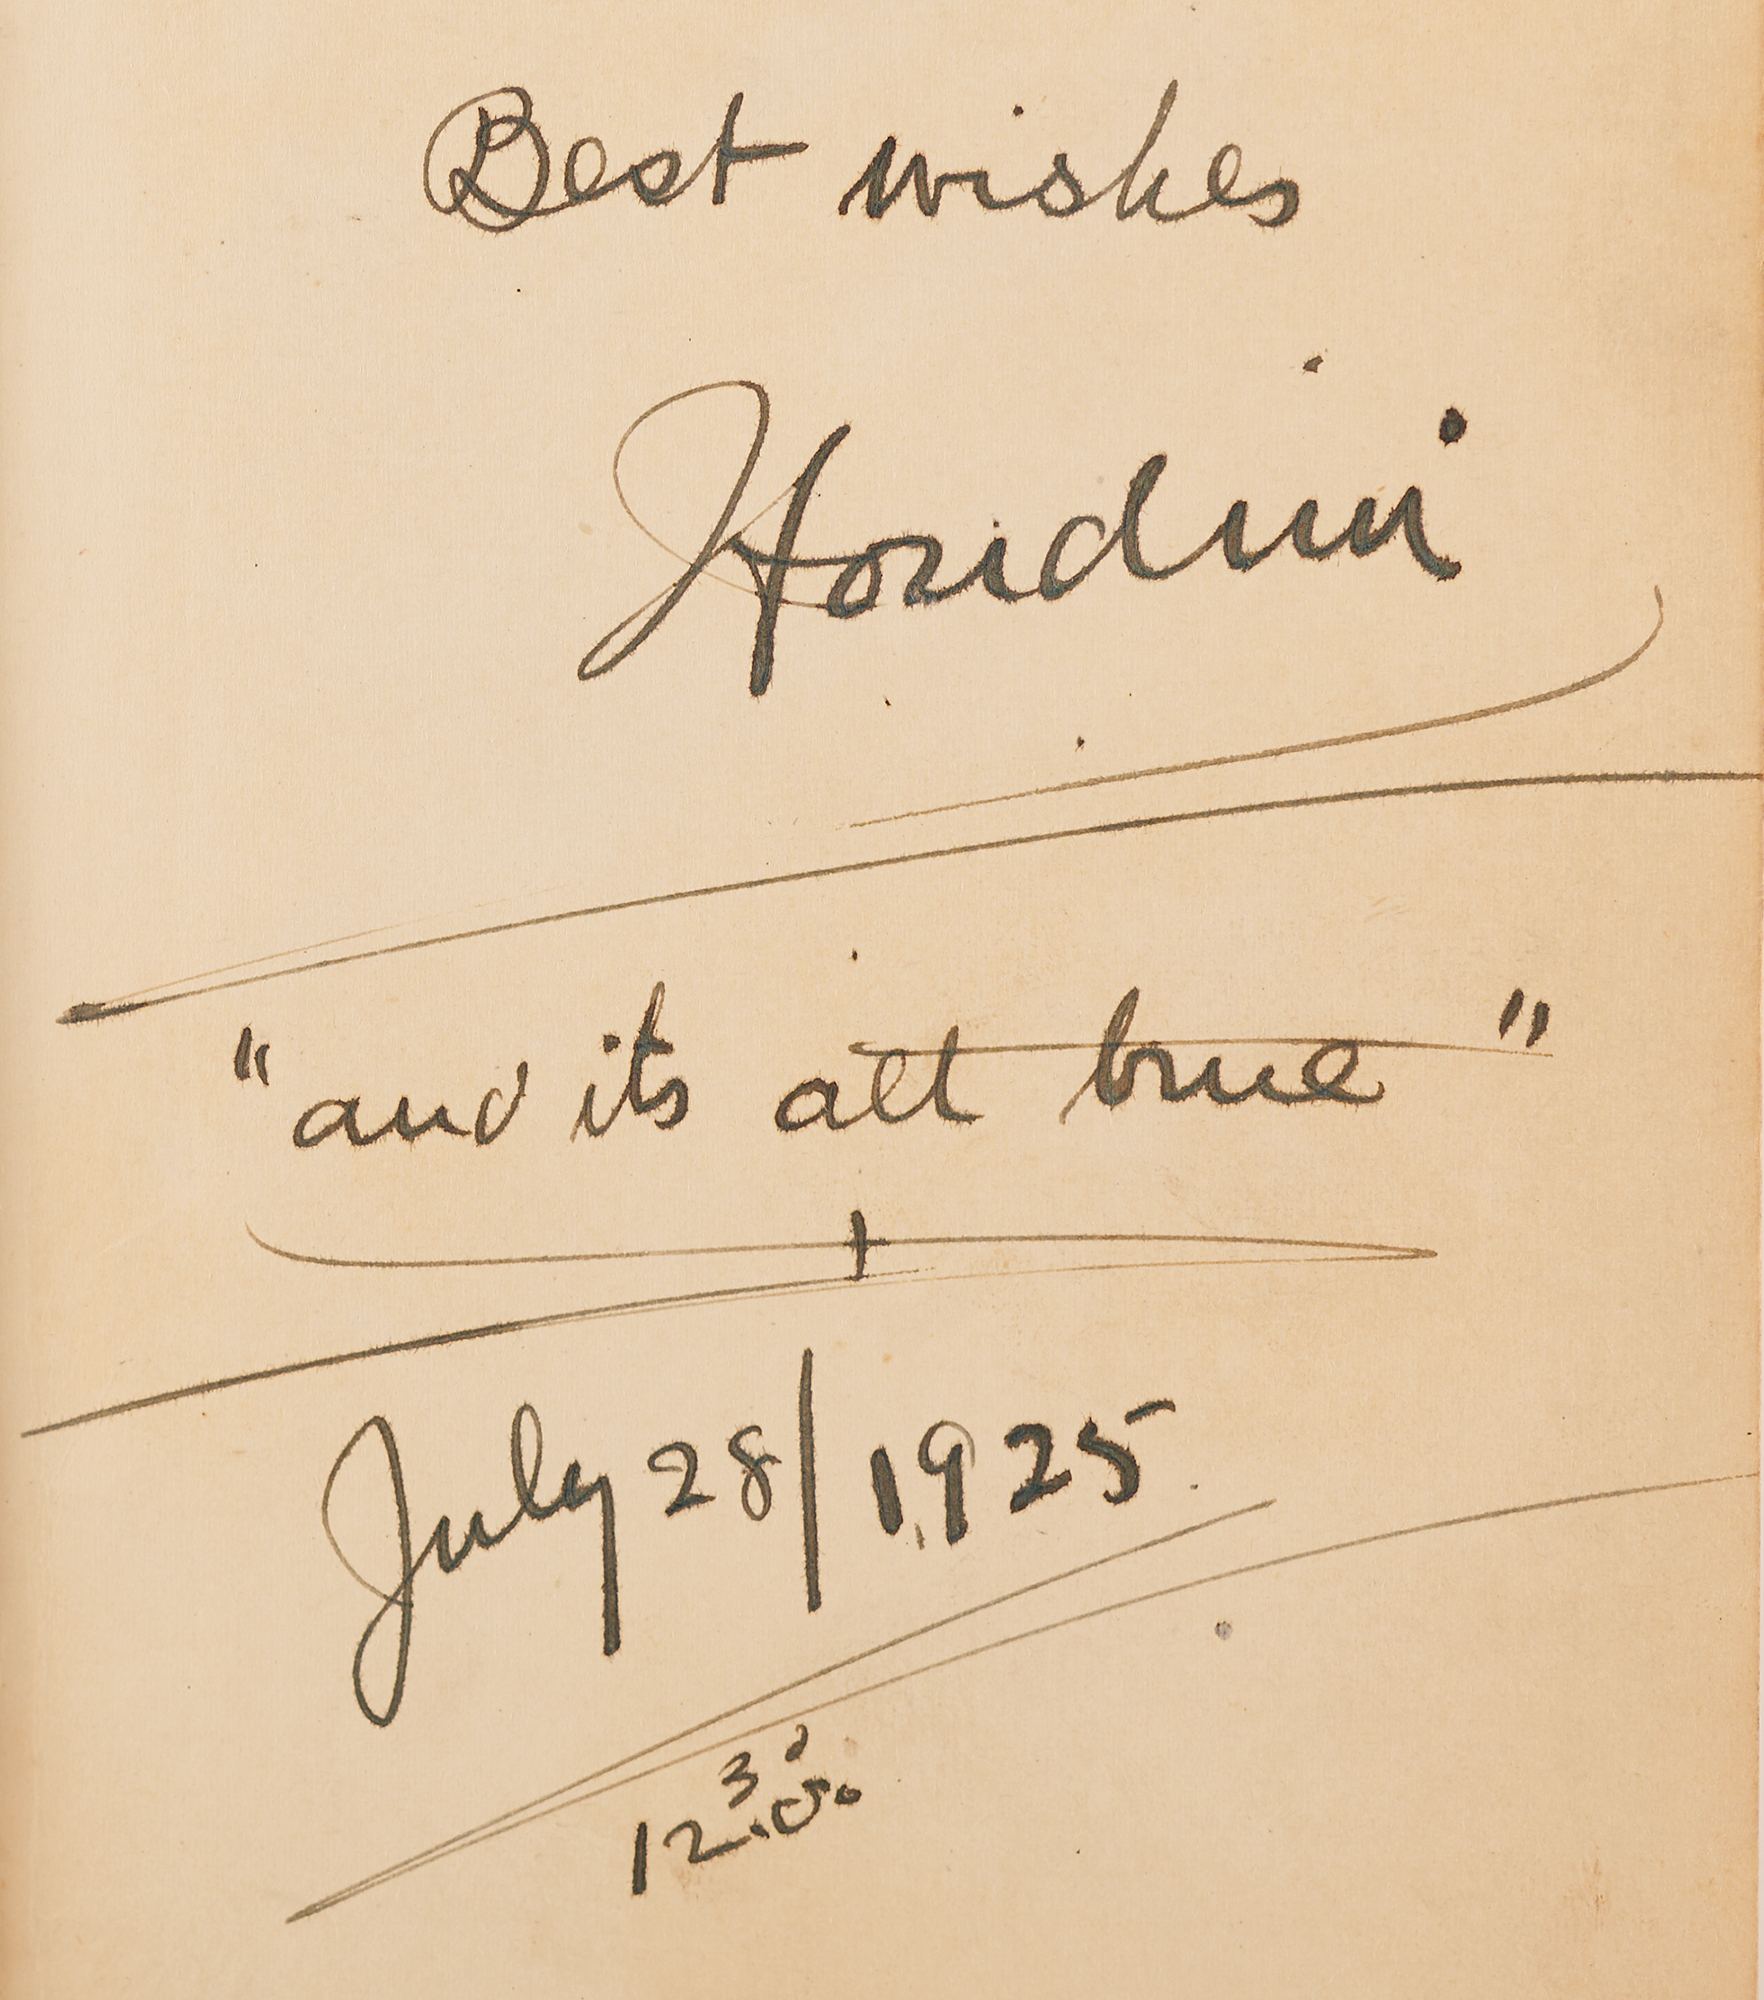 Best wishes
Houdini
"and its all true"
July 28/1925
12.